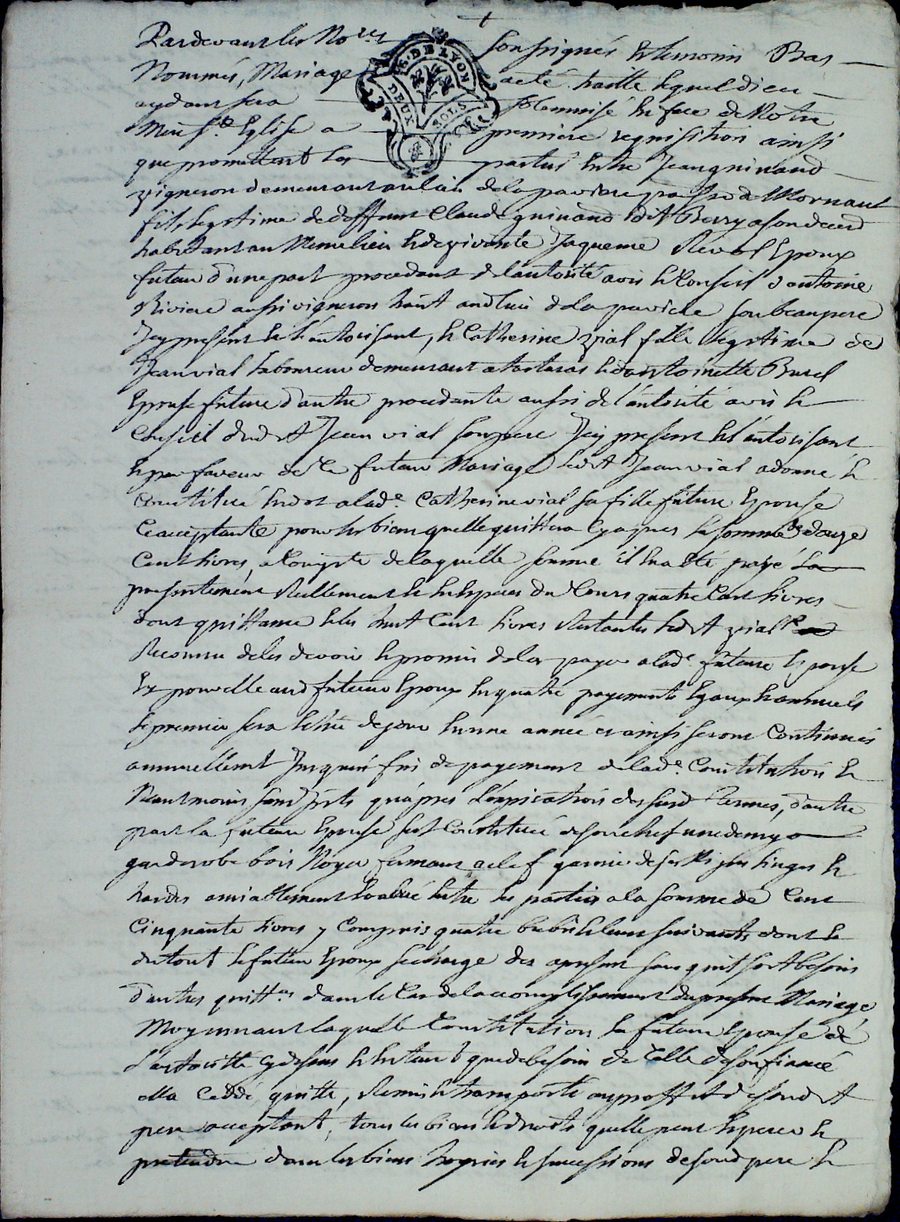 Pardevant les No.res soussignés & temoins Bas
Nommés, Mariage a eté traitté lequel dieu
aydant sera solemnisé en face de Notre
Mere S.te Eglise a premiere requisition ainsi
que promettent les parties Entre Jean guinand
vigneron demeurant au lieu de la paroisse de Mornant
fils legitime de deffunt Claude guinand dit Berry a son deced
habitant au Meme lieu & de vivante Jaqueme Revol Epoux
futeur d'une part procedant de l'autorité avis & Conseil d'antoine
Riviere aussi vigneron audt lieu de la son beaupere
Icy present & l'autorisant, & Catherine vial fille legitime de
Jean vial laboureur demeurant a tartaras & d'antoinette Burel
Epouse future d'autre procedante aussi de l'autorité avis &
Conseil dudt Jean vial son pere Icy present & l'autorisant
& par faveur de Ce futeur Mariage ledt Jean vial a donné &
Constitué en dot a lad.e Catherine vial sa fille future Epouse
Ce acceptante pour les biens quelle quittera Cy apres la somme de douze
Cent livres, a Compte de laquelle somme il en a eté payé
presentement Reellement & en Especes du Cours quatre Cent livres
dont quittance & les huit Cent livres Restantes ledt vial
Reconnu de les devoir & promis de les payer a lad.e future Epouse
& pour elle aud futeur Epoux en quatre payements Egaux & annuels
le premier sera & de ce jour en une année & ainsi seront Continués
annuellement Jusqu'a fin de payement de lad.e Constitution &
Neantmoins sans Jnts qu'apres l'expiration desd termes, d'autre
part la future Epouse s'est Constituée de son chef une demy
garderobe bois Noyer fermant a clef garnie de ses linges &
hardes amiablement Evalué Entre les parties a la somme de Cent
Cinquante livres y Compris quatre brebis & leurs suivants dont &
du tout le futeur Epoux se charge des apresent sans quil soit besoin
d'autres quitt.es dans le Cas de l'accomplissement du present Mariage
Moyennant laquelle Constitution la future Epouse de
l'autorité Cy dessus & Entant que de besoin de Celle de son fiancé
Ella Ceddé, quitté, Remis & transporté au proffit de sond
pere acceptant, tous les biens & droits quelle peut Esperer &
pretendre dans les biens hoiries & successions de sond pere &